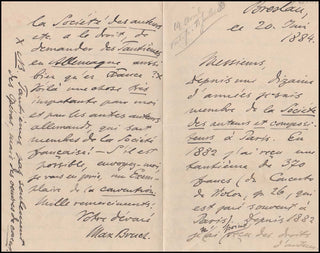 Breslau,
ce 20. Juni
1884.
Messieurs,
depuis une dizaine
d'années je suis
membre de la Société
des auteurs et composi-
teurs à Paris. En
1882 j'ai reçu une
tantième de 370
francs (de
Violon, op 26, qui
est joué souvent à
Paris). Depuis 1882
je n'ai point reçu des droits
d'auteur
la Société des auteurs
etc. a le droit, de
demander des Tantièmes
en Allemagne aussi
bien qu'en France x
Voilà une chose très
importante pour moi
et pour les autres auteurs
allemands qui sont
membres de la Société
française! — S'il est
possible, envoyez-moi,
je vous en prie, un Exem-
plaire de la convention
Mille remerciments.
Votre dévoué
Max Bruch.